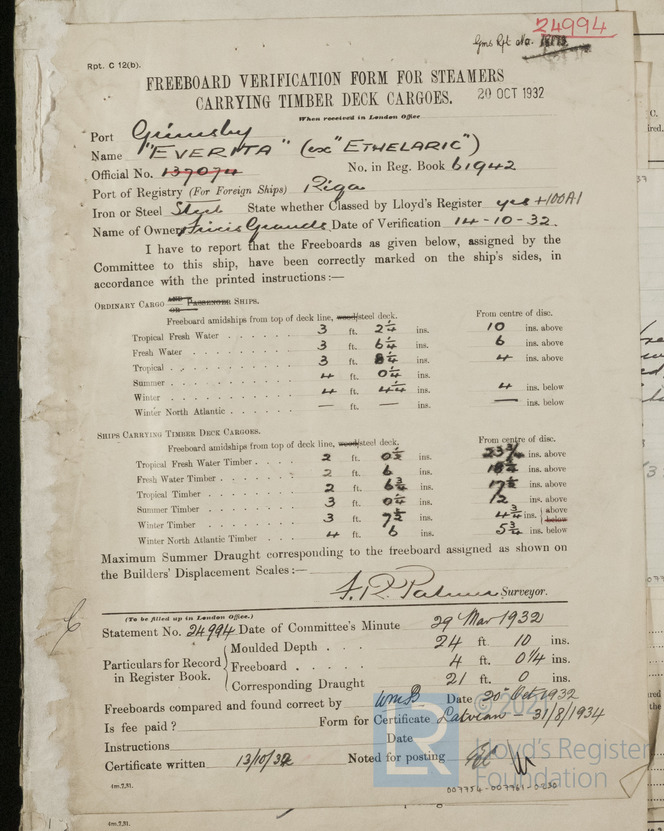 24994
Gms Rpt No.
Rpt. C 12(b).
FREEBOARD VERIFICATION FORM FOR STEAMERS
CARRYING TIMBER DECK CARGOES.
20 OCT 1932
When received in London Office
Port Grimsby
Name "EVERITA" (ex "ETHELARIC")
Official No. 137074 No. in Reg. Book 61942
Port of Registry (For Foreign Ships) Riga
Iron or Steel Steel State whether Classed by Lloyd's Register yes +100A1
Name of Owner Date of Verification 14-10-32.
I have to report that the Freeboards as given below, assigned by the
Committee to this ship, have been correctly marked on the ship's sides, in
accordance with the printed instructions:—
ORDINARY CARGO AND PASSENGER SHIPS.
OR
Freeboard amidships from top of deck line, wood/steel deck. From centre of disc.
Tropical Fresh Water 3 ft. 2¼ ins. 10 ins. above
Fresh Water 3 ft. 6¼ ins. 6 ins. above
Tropical 3 ft. 8¼ ins. 4 ins. above
Summer 4 ft. 0¼ ins.
Winter 4 ft. 4¼ ins. 4 ins. below
Winter North Atlantic — ft. — ins. — ins. below
SHIPS CARRYING TIMBER DECK CARGOES.
Freeboard amidships from top of deck line, wood/steel deck. From centre of disc.
Tropical Fresh Water Timber 2 ft. 0½ ins. 23¾ ins. above
Fresh Water Timber 2 ft. 6 ins. ins. above
Tropical Timber 2 ft. 6¾ ins. 17½ ins. above
Summer Timber 3 ft. 0¼ ins. 12 ins. above
Winter Timber 3 ft. 7½ ins. 4¾ ins. above
below
Winter North Atlantic Timber 4 ft. 6 ins. 5¾ ins. below
Maximum Summer Draught corresponding to the freeboard assigned as shown on
the Builders' Displacement Scales:—
Surveyor.
(To be filled up in London Office.)
Statement No. 24994 Date of Committee's Minute 29 Mar 1932
Particulars for Record in Register Book.
Moulded Depth 24 ft. 10 ins.
Freeboard 4 ft. 0¼ ins.
Corresponding Draught 21 ft. 0 ins.
Freeboards compared and found correct by WMB Date 20 Oct 1932
Is fee paid? Form for Certificate Latvian – 31/8/1934
Instructions Date
Certificate written 13/10/32 Noted for posting
4m,7,31.
© 202
LR
Lloyd's Register
Foundation
007754-007761-0230
4m,7,31.